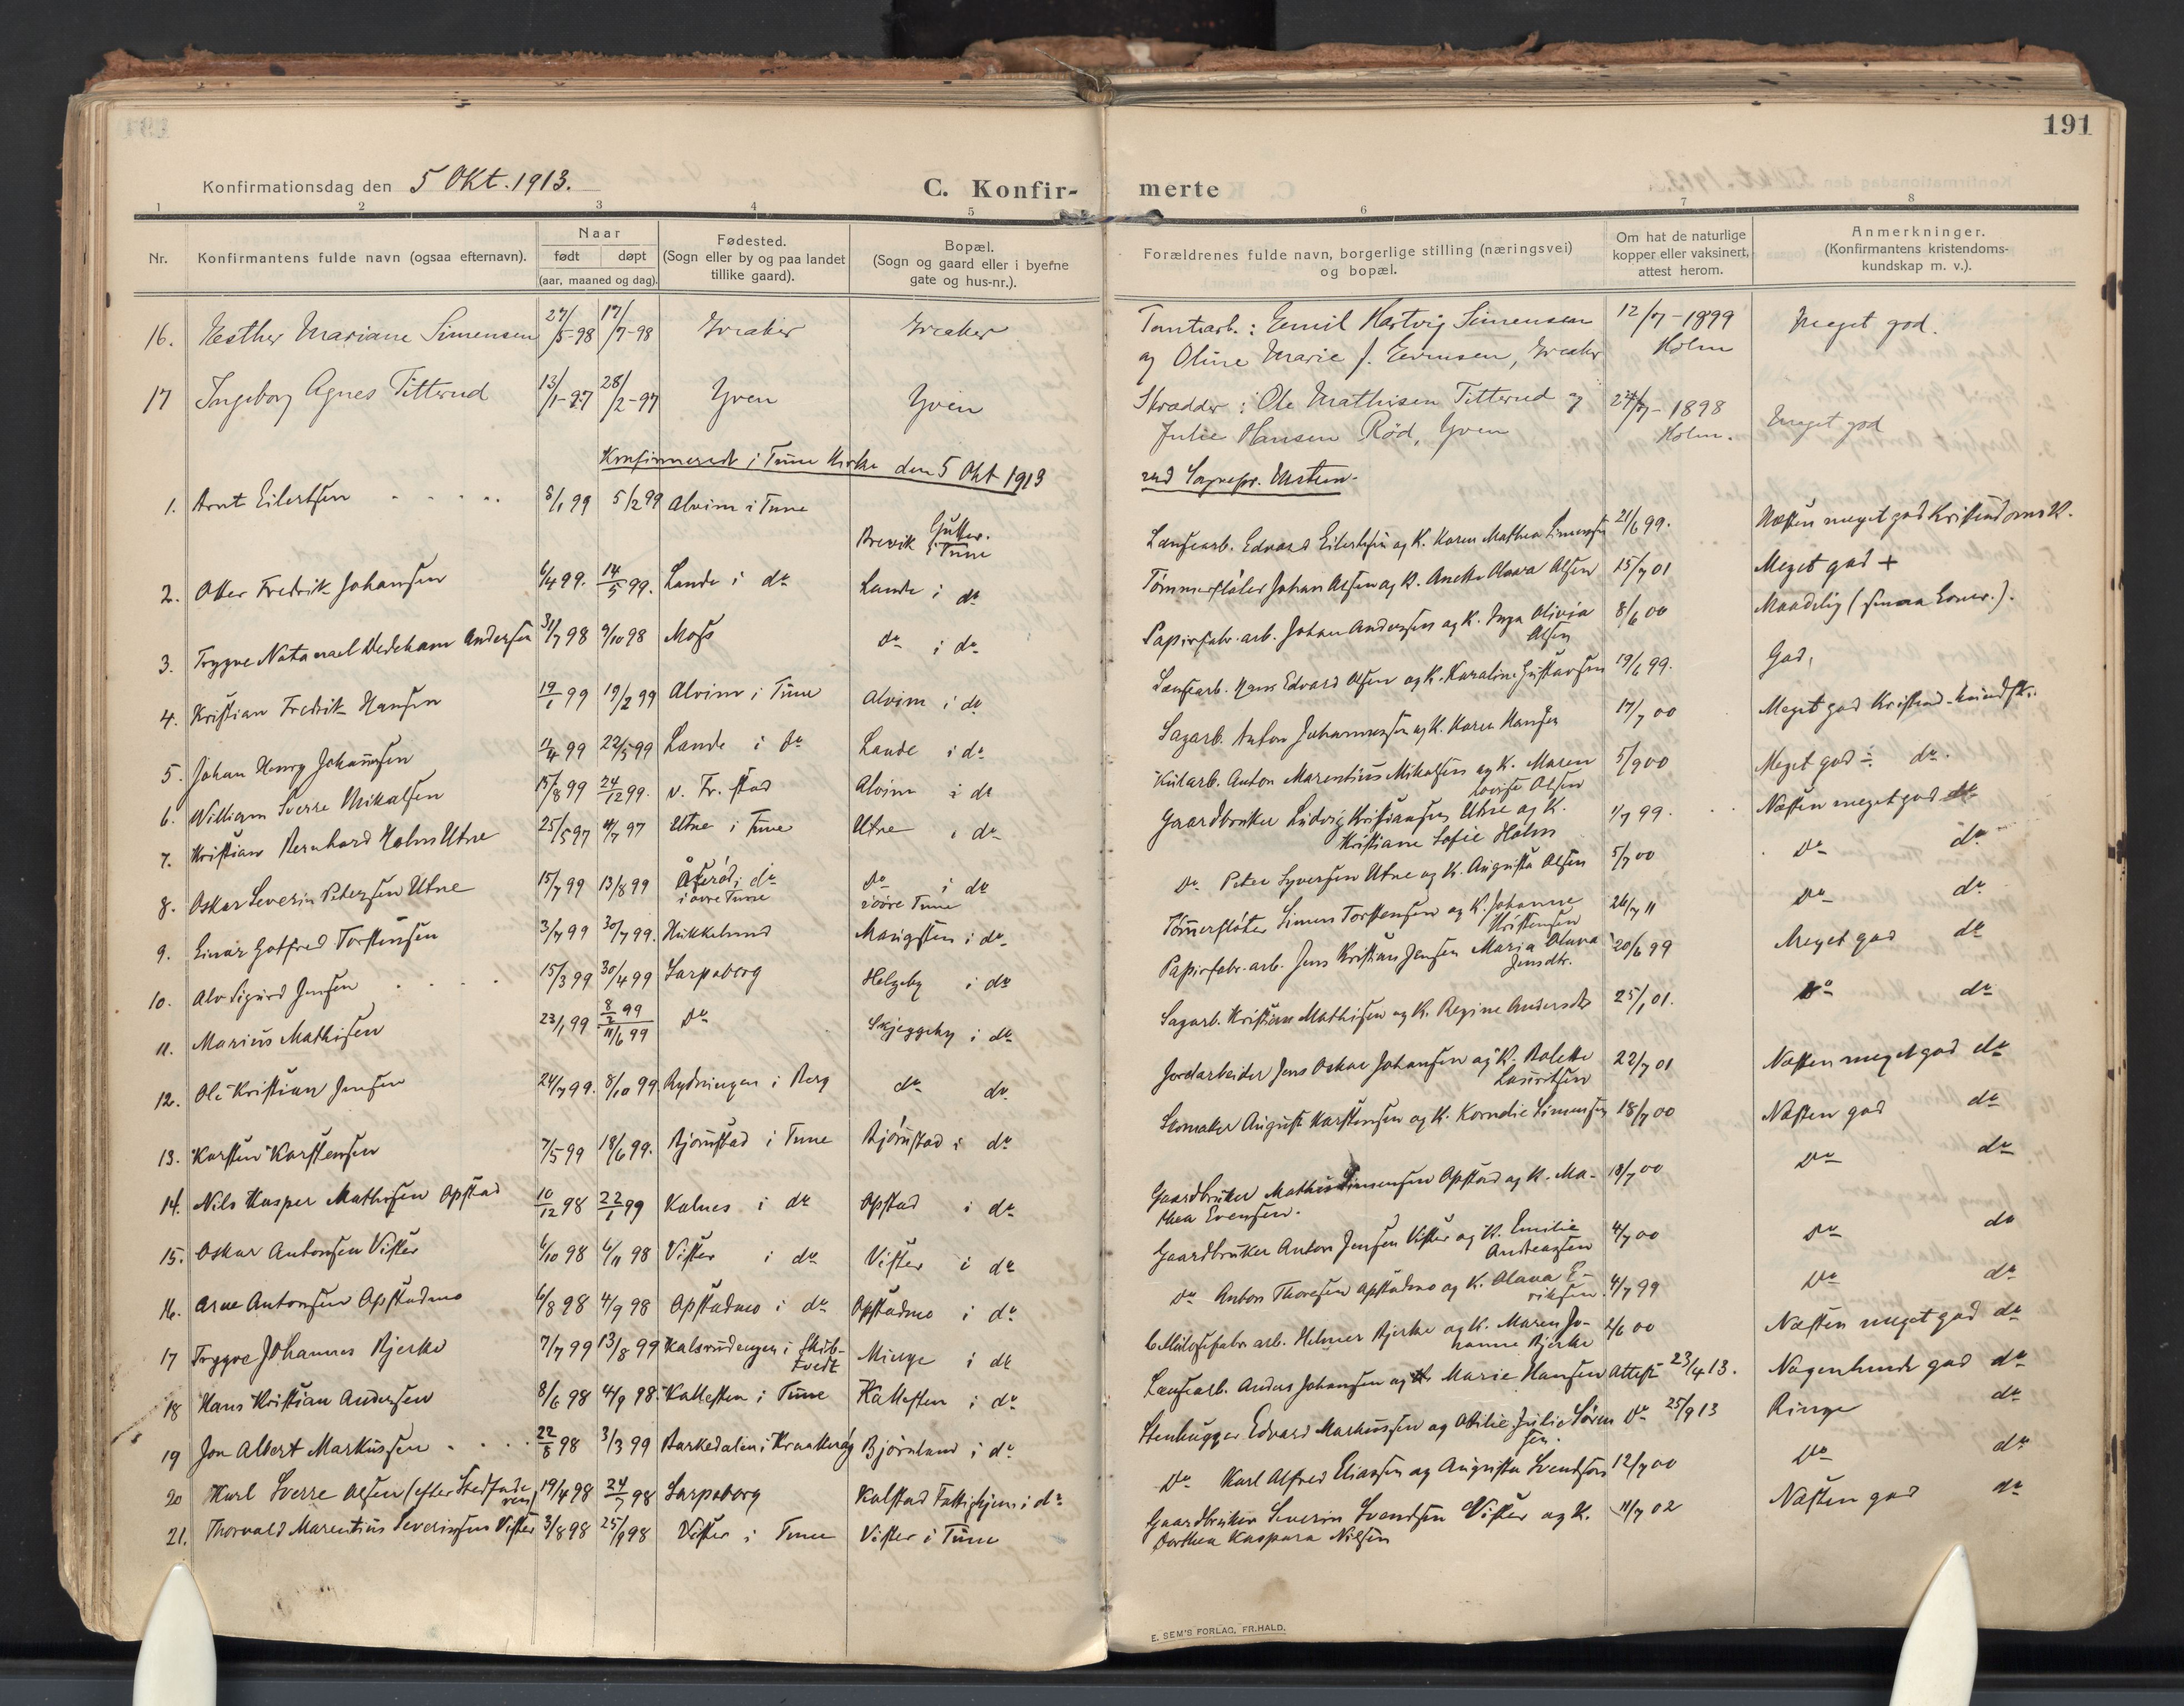 191
Konfirmationsdag den 5 Okt. 1913.
C. Konfirmerte
1 2 3 4 5 6 7 8
Nr.
Konfirmantens fulde navn (ogsaa efternavn).
Naar
født døpt
(aar, maaned og dag).
Fødested.
(Sogn eller by og paa landet
tillike gaard).
Bopæl.
(Sogn og gaard eller i byerne
gate og hus-nr.).
Forældrenes fulde navn, borgerlige stilling (næringsvei)
og bopæl.
Om hat de naturlige
kopper eller vaksinert,
attest herom.
Anmerkninger.
(Konfirmantens kristendoms-
kundskap m. v.).
16. Esther Mariane Simensen 27/5-98 17/7-98 Greaker Greaker Tomtearb.: Emil Hartvig Simensen 12/7-1899 Meget god.
og Oline Marie f. Evensen, Greaker Holm
17 Ingeborg Agnes Titterud 13/1-97 28/2-97 Yven Yven Skrædder: Ole Mathisen Titterud og 27/7-1898 Meget god
Julie Hansen Rød, Yven Holm.
Konfirmeret i Tune Kirke den 5 Okt 1913
ved Sognepr.
1. Arnt Eilertsen 5/1 99 5/2 99 Alvim i Tune Brevik i Tune Lænsearb. Edvard Eilertsen og K. Karen Mathea Simensen 21/6 99. Næsten meget god Kristendomsk.
2. Otter Fredrik Johansen 6/4 99. 14/5 99. Lande i do Lande i do Tømmerfløter Johan Olsen og K. Anette Olava Olsen 15/7 01 Meget god +
3. Trygve Natanael Andersen 31/7 98 9/10 98 Moss do i do Papirfabr. arb. Johan Andersen og K. Inga Olivia 8/6 00 Maadelig
Olsen
4. Kristian Fredrik Hansen 19/1 99 19/2 99 Alvim i Tune Alvim i do Lænsearb. Hans Edvard Olsen og K. Karoline Gustavsen 19/6 99. God,
5. Johan Henry Johannsen 11/4 99 22/5 99 Lande i do Lande i do Sagarb. Anton Johannessen og K. Karen Hansen 17/7 00 Meget god Kristend. kundsk.
6. William Sverre Mikalsen 15/8 99 24/12 99. v. Fr. stad Alvim i do Kularb. Anton Marentius Mikalsen og K. Maren 5/9 00 Meget god ÷ do.
Lovise Olsen
7. Kristian Bernhard Holm Utne 25/5 97 4/7 97 Utne i Tune Utne i do Gaardbruker Ludvig Kristiansen Utne og K. 1/7 99. Næsten meget god
Kristiane Sofie Holm
8. Oskar Severin Petersen Utne 15/7 99 13/8 99 Åserød i do do i do do Peter Syversen Utne og K. Augusta Olsen 5/7 00 do do
i øvre Tune i øvre Tune
9. Einar Gotfred Torstensen 3/7 99 30/7 99. Hukkelund i do Tømmerfløter Simen Torstensen og K. Johanne 26/7 11 do do
Kristensen
10. Alv Sigurd Jensen 15/3 99 30/4 99 Sarpsborg Helgeby i do Papirfabr. arb. Jens Kristian Jensen Maria Olava 20/6 99 Meget god do
Jensdtr.
11. Marius Mathisen 23/1 99 8/2 99 do Skjeggeby i do Sagarb. Kristian Mathisen og K. Regine Andersdtr 25/1 01. do do
11/6 99
12. Ole Kristian Jensen 24/7 99. 8/10 99 Rydningen i Berg do do Jordarbeider Jens Oskar Johansen og K. Bolette 22/7 01 Næsten meget god do
Lauritsen
13. Karsten Karstensen 7/5 99 18/6 99. Bjørnstad i Tune Bjørnstad i do Skomaker August Karstensen og K. Kornelie Simensen 18/7 00 Næsten god do
14. Nils Kasper Mathisen Opstad 10/12 98 22/1 99 Kalnes i do Opstad i do Gaardbruker Mathis Simensen Opstad og K. Ma- 18/7 00 do do
thea Evensen.
15. Oskar Antonsen Vister 6/10 98 6/11 98 Vister i do Vister i do Gaardbruker Anton Jensen Vister og K. Emilie 4/7 00 do do
Andreassen
16. Arne Antonsen Opstadmo 6/8 98 4/9 98 Opstadmo i do Opstadmo i do do Anton Thoresen Opstadmo og K. Olava E- 4/7 99 do do
riksen
17 Trygve Johannes Bjerke 7/7 99 13/8 99 Kalsrudengen i Skib- Minge i do Cellulosefabr. arb. Helmer Bjerke og K. Maren Jo- 2/6 00 Næsten meget god do
tvedt hanne Bjerke
18 Hans Kristian Andersen 8/6 98 4/9 98 Kattesten i Tune Kattesten i do Lænsearb. Anders Johansen og Marie Hansen Attest 23/4 13. Nogenlunde god do
19 Jon Albert Markussen 22/8 98 3/3 99 Barkedalen i Kraakerøy Bjørnland i do Stenhugger Edvard Markussen og Otilie Julie Søren do 25/9 13 Ringe do
sen.
20 Karl Sverre Olsen (efter Stedfade 19/4 98 24/7 98 Sarpsborg Kalstad Fattighjem i do do Karl Alfred Eliassen og Augusta Svendsen 12/7 00 do do
ren)
21. Thorvald Marentius Severinsen Vister 3/8 98 25/9 98 Vister i Tune Vister i Tune Gaardbruker Severin Svendsen Vister og K. 11/7 02 Næsten god do
Dorthea Kaspara Nilsen
E. SEM'S FORLAG, FR.HALD.